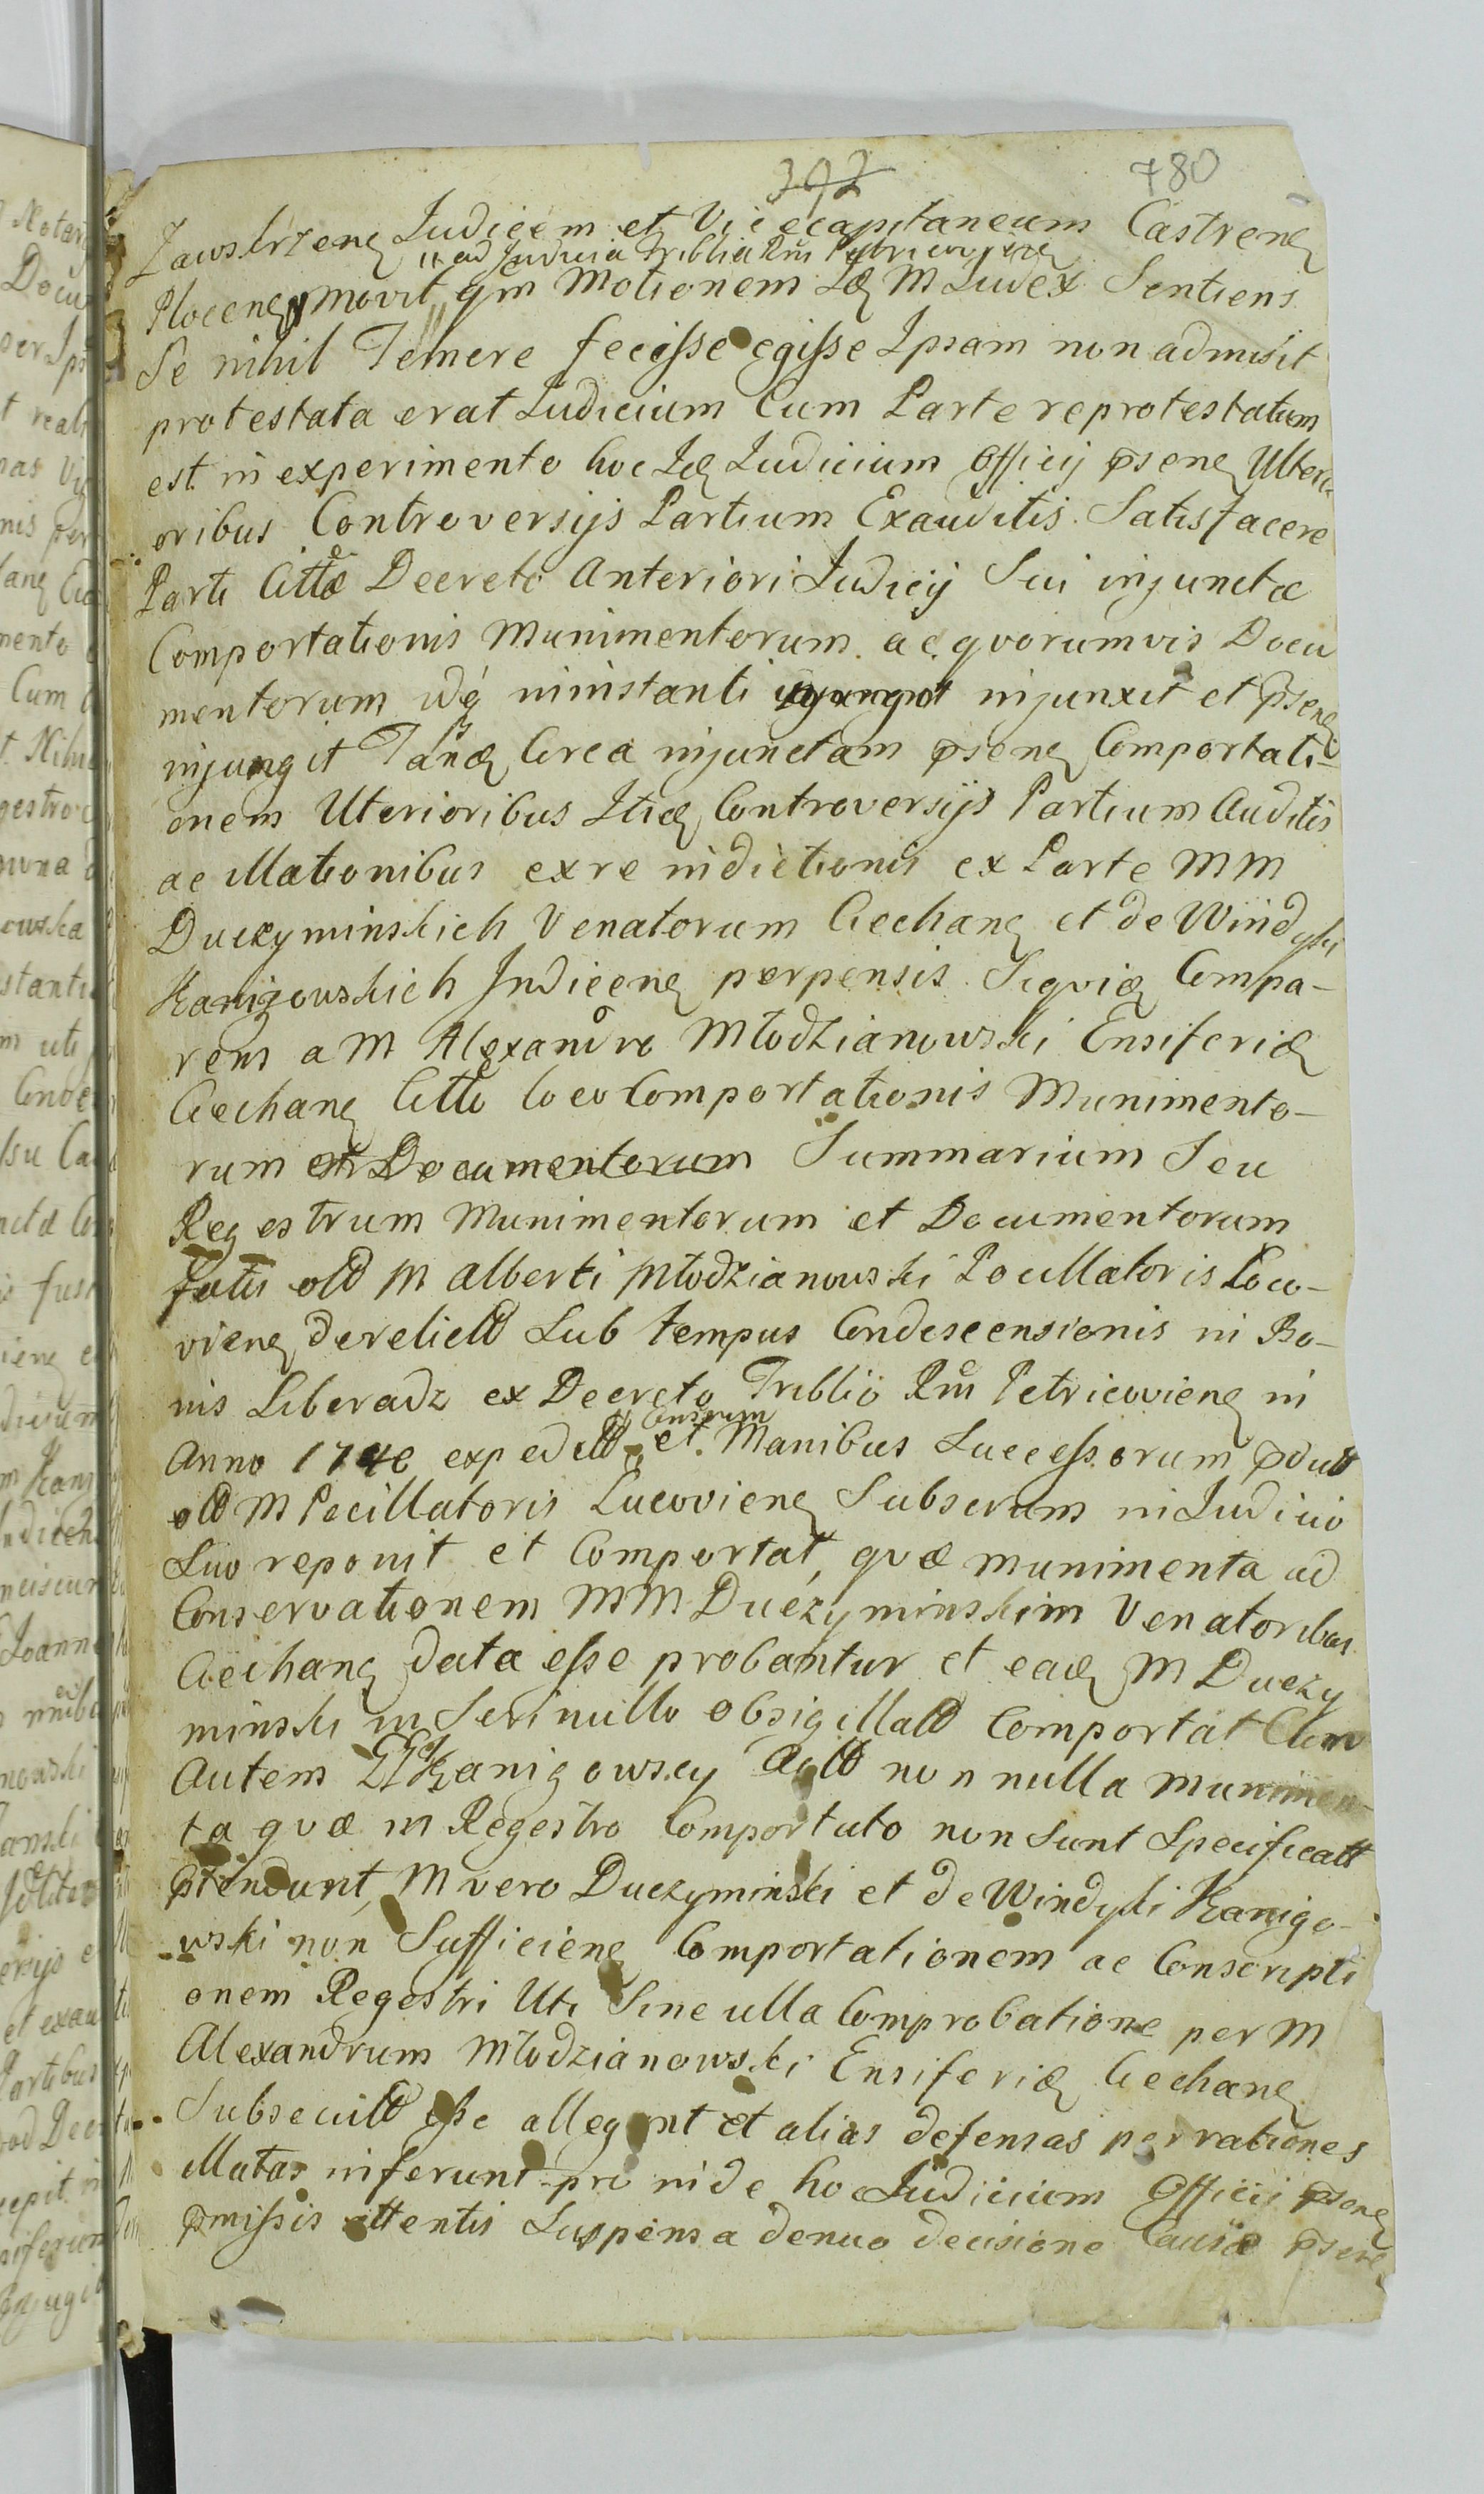 392 780
Zawskrzenę Judicem et Vicecapitaneum Castrenę
" ad Judicia Triblia Rni Petricovienę
Plocenę movit, qm Motionem Idę M Judex Sentiens
Se nihil Temere fecisse egisse Ipsam non admisit
protestata erat Judicium Cum Parte reprotestatum
est in experimento hoc Idę Judicium Officij psenę Ulteri
oribus Controversijs Partium Exauditis Satisfacere
Parti Cittæ Decreto Anteriori Judicij Sui injunctæ
Comportationis Munimentorum ac quorumvis Docu
mentorum idq ninstanti injunxit et psenę
injungit Tandę Circa injunctam psenę Comportati-
onem Uterioribus Itidę Controversijs Partium Auditis
ac Illationibus ex re indictionis ex Parte MM
Duczyminskich Venatorum Ciechanę et de Windyki
Kanigowskich Indicenę perpensis Siquidę Compa-
rens a M Alexandro Młodzianowski Ensiferidę
Ciechanę Citto loco Comportationis Munimento-
rum et Documentorum Summarium Seu
Regestrum Munimentorum et Documentorum
fatis olD M Alberti Młodzianowski Pocillatoris Loco-
vienę derelictt Sub tempus Condescensionis in Bo-
nis Liberadz ex Decreto Triblij Rni Petricovienę in
Anno 1740 expeditt et Manibus Successorum pdutt
olD M Pocillatoris Lucovienę Subscrum in Judicio
Suo reponit et Comportat, quæ munimenta ad
Conservationem MM Duczyminskim Venatoribus
Ciechanę data esse probantur et eadę M Duczy
minski in Serinullo obsigillatt Comportat
Autem GG Kanigowscy Actt non nulla munimen-
ta quæ in Regestro Comportato non sunt Specificatt
ptendunt, M vero Duczyminski et de Windyki Kanigo-
wski non Sufficienę Comportationem ac Conscripti
onem Regestri Uti Sine ulla Comprobatione per M
Alexandrum Młodzianowski Ensiferidę Ciechanę
Subsecutt esse allegant et alias defensas per rationes
illatas inferunt pro inde hoc Judicium Officii psenę
pmissis attentis Suspensa denuo decisione Causæ psenę